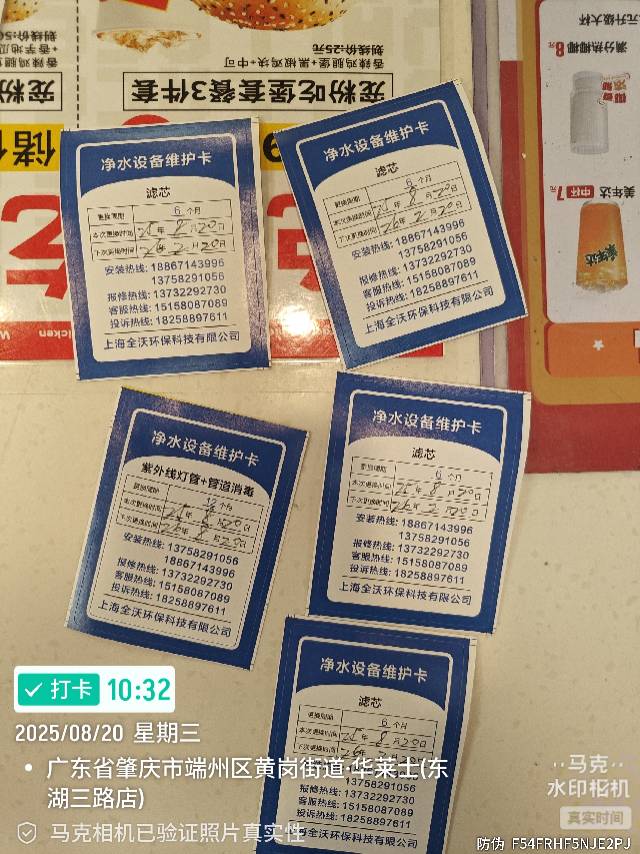 宠粉吃堡套餐3件套
香辣鸡腿堡+黑椒鸡块+中可
划线价:25元
宠粉
+香芋地瓜
储
元升级大杯
满分热椰椰 8
美年达 中杯 7
净水设备维护卡
滤芯
更换周期 6 个月
本次更换时间 25年 8月20日
下次更换时间 26年 2月20日
安装热线: 18867143996
13758291056
报修热线: 13732292730
客服热线: 15158087089
投诉热线: 18258897611
上海全沃环保科技有限公司
净水设备维护卡
滤芯
更换周期 6 个月
本次更换时间 25年 8月20日
下次更换时间 26年 2月20日
安装热线: 18867143996
13758291056
报修热线: 13732292730
客服热线: 15158087089
投诉热线: 18258897611
上海全沃环保科技有限公司
净水设备维护卡
紫外线灯管+管道消毒
更换周期 12 个月
本次更换时间 25年 8月20日
下次更换时间 26年 8月20日
安装热线: 13758291056
18867143996
报修热线: 13732292730
客服热线: 15158087089
投诉热线: 18258897611
上海全沃环保科技有限公司
净水设备维护卡
滤芯
更换周期 6 个月
本次更换时间 25年 8月20日
下次更换时间 26年 2月20日
安装热线: 18867143996
13758291056
报修热线: 13732292730
客服热线: 15158087089
投诉热线: 18258897611
上海全沃环保科技有限公司
净水设备维护卡
滤芯
更换周期 6 个月
本次更换时间 25年 8月20日
下次更换时间 26年 2月20日
安装热线: 18867143996
13758291056
报修热线: 13732292730
客服热线: 15158087089
投诉热线: 18258897611
上海全沃环保科技有限公司
打卡 10:32
2025/08/20 星期三
广东省肇庆市端州区黄岗街道·华莱士(东
湖三路店)
马克相机已验证照片真实性
马克
水印相机
真实时间
防伪 F54FRHF5NJE2PJ